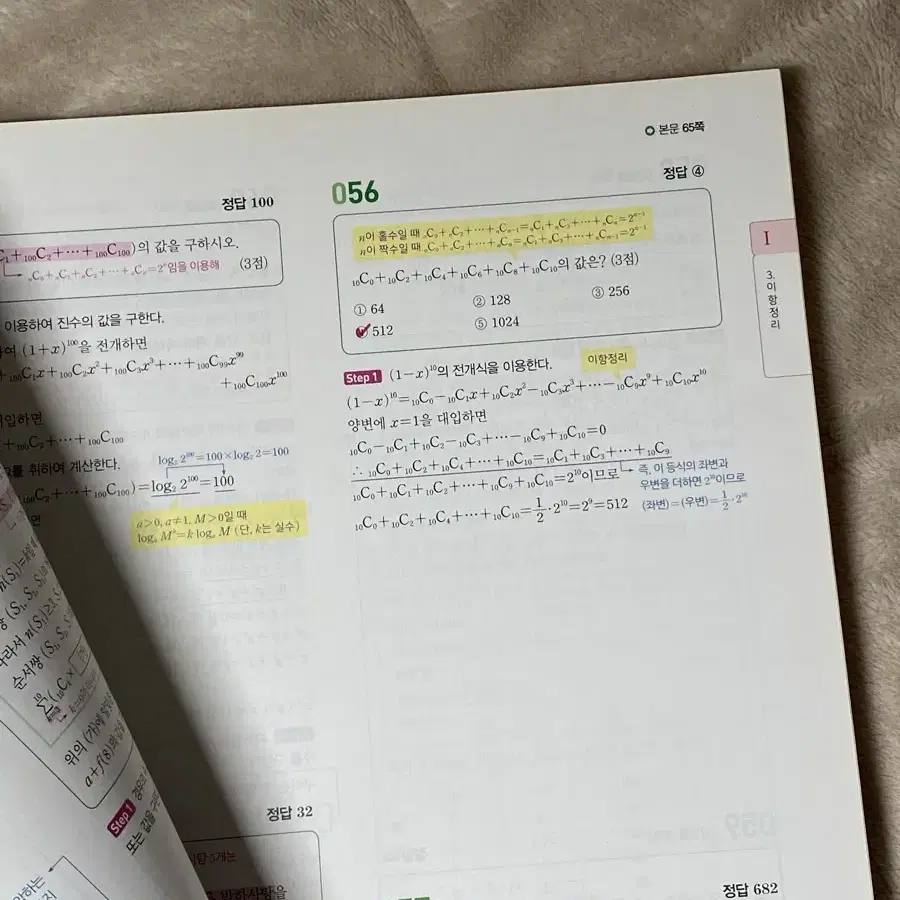 본문 65쪽
정답 100
C₁+₁₀₀C₂+⋯+₁₀₀C₁₀₀)의 값을 구하시오.
ₙC₀+ₙC₁+ₙC₂+⋯+ₙCₙ=2ⁿ임을 이용해 (3점)
이용하여 진수의 값을 구한다.
(1+x)¹⁰⁰을 전개하면
₁₀₀C₁x+₁₀₀C₂x²+₁₀₀C₃x³+⋯+₁₀₀C₉₉x⁹⁹
+₁₀₀C₁₀₀x¹⁰⁰
입하면
+₁₀₀C₂+⋯+₁₀₀C₁₀₀
를 취하여 계산한다.
log₂ 2¹⁰⁰=100×log₂ 2=100
₁₀₀C₂+⋯+₁₀₀C₁₀₀)=log₂ 2¹⁰⁰=100
a>0, a≠1, M>0일 때
logₐ Mᵏ=k logₐ M (단, k는 실수)
순서쌍 (S₁, S₂, S
위의 (가)에 알맞은
a+f(8)의 값은
Step 1
또는
정답 32
056
정답 ④
n이 홀수일 때 ₙC₀+ₙC₂+⋯+ₙCₙ₋₁=ₙC₁+ₙC₃+⋯+ₙCₙ=2ⁿ⁻¹
n이 짝수일 때 ₙC₀+ₙC₂+⋯+ₙCₙ=ₙC₁+ₙC₃+⋯+ₙCₙ₋₁=2ⁿ⁻¹
₁₀C₀+₁₀C₂+₁₀C₄+₁₀C₆+₁₀C₈+₁₀C₁₀의 값은? (3점)
① 64 ② 128 ③ 256
④ 512 ⑤ 1024
이항정리
Step 1 (1-x)¹⁰의 전개식을 이용한다.
(1-x)¹⁰=₁₀C₀-₁₀C₁x+₁₀C₂x²-₁₀C₃x³+⋯-₁₀C₉x⁹+₁₀C₁₀x¹⁰
양변에 x=1을 대입하면
₁₀C₀-₁₀C₁+₁₀C₂-₁₀C₃+⋯-₁₀C₉+₁₀C₁₀=0
∴ ₁₀C₀+₁₀C₂+₁₀C₄+⋯+₁₀C₁₀=₁₀C₁+₁₀C₃+⋯+₁₀C₉
₁₀C₀+₁₀C₁+₁₀C₂+⋯+₁₀C₉+₁₀C₁₀=2¹⁰이므로
즉, 이 등식의 좌변과
우변을 더하면 2¹⁰이므로
(좌변)=(우변)=1/2·2¹⁰
₁₀C₀+₁₀C₂+₁₀C₄+⋯+₁₀C₁₀=1/2·2¹⁰=2⁹=512
I
3. 이항정리
정답 682